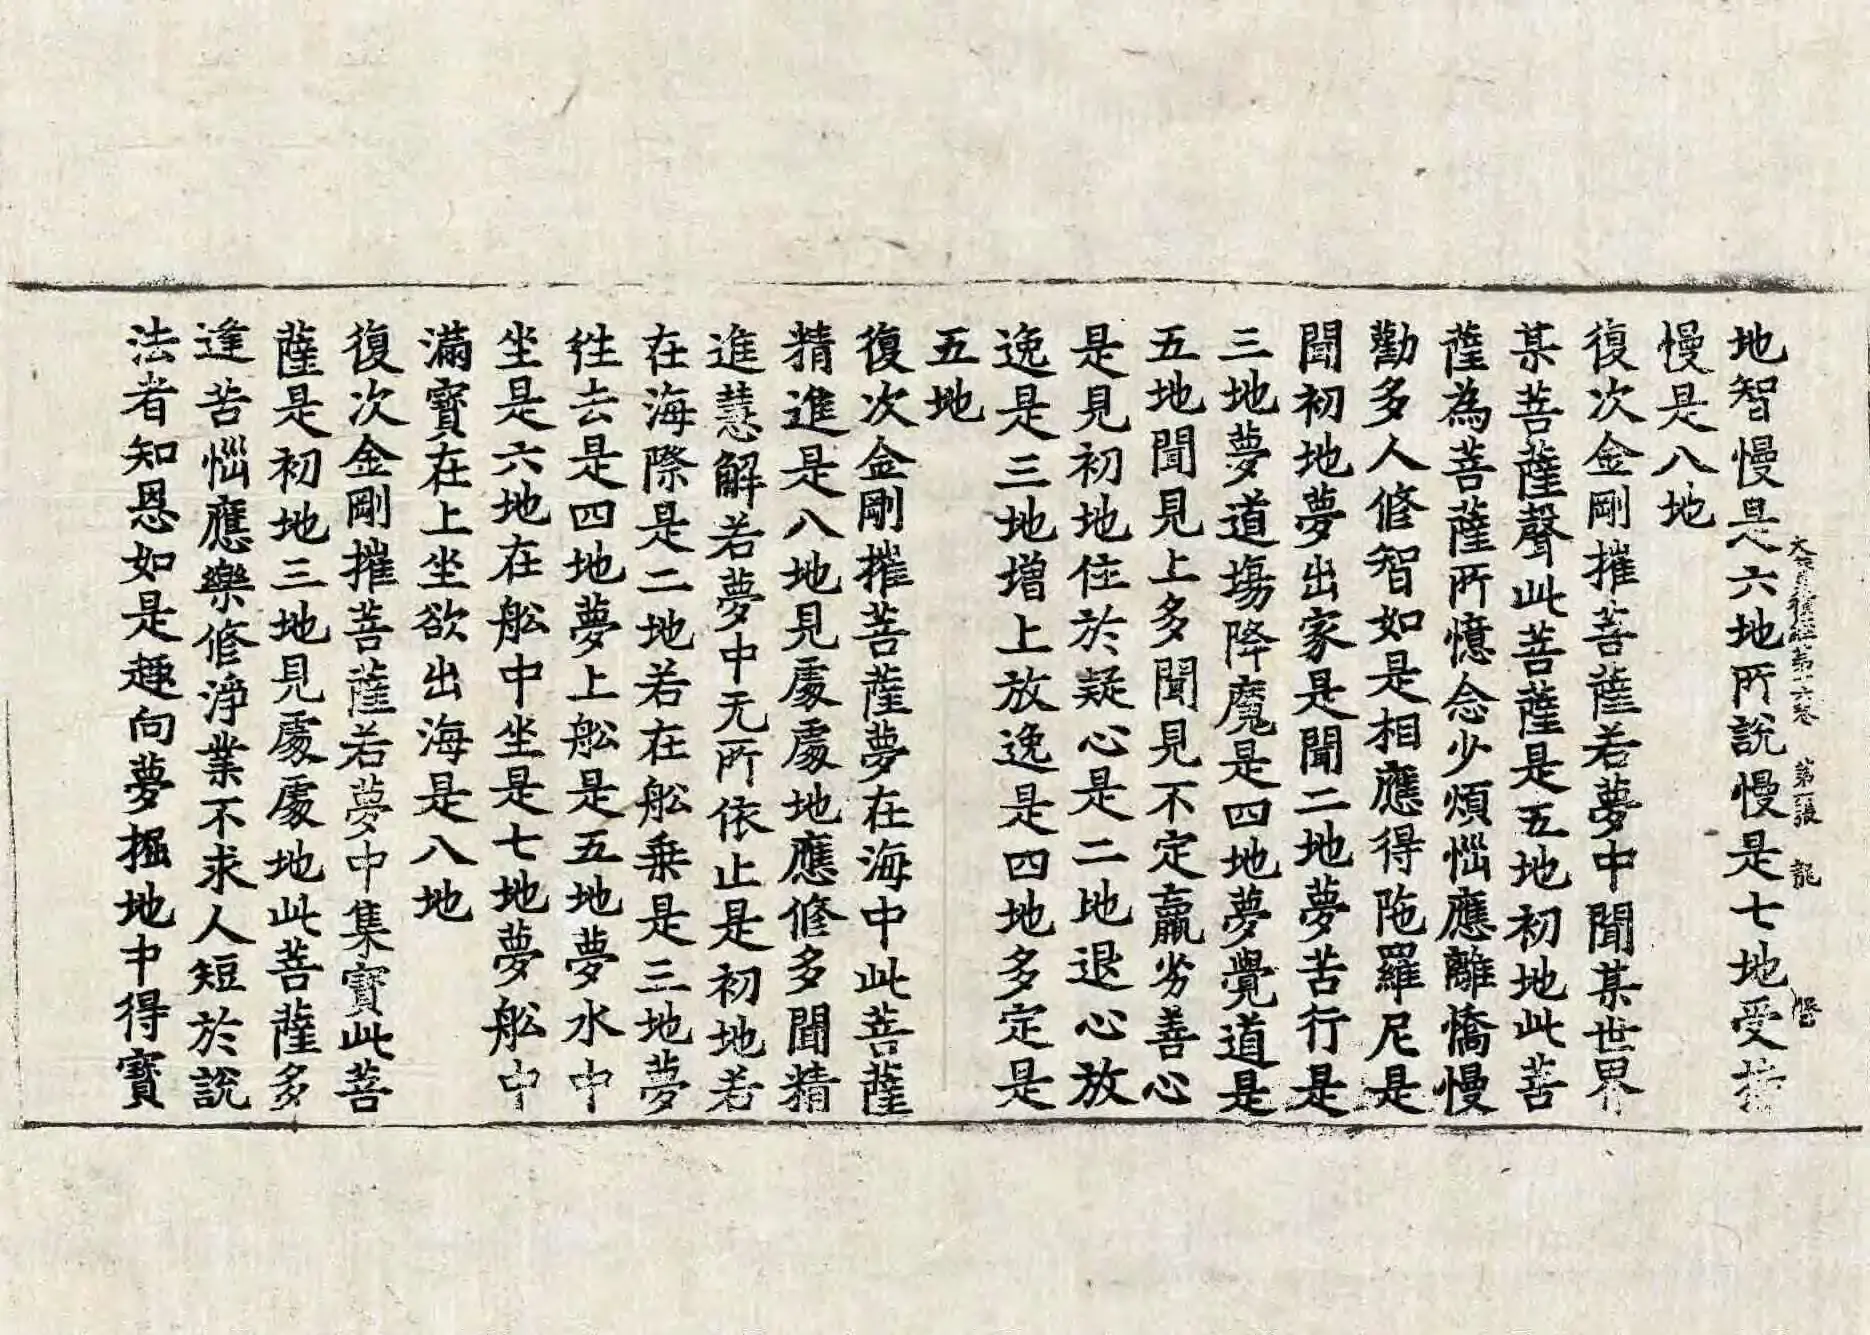 地智慢是六地所說慢是七地受持
慢是八地
復次金剛摧菩薩若夢中聞某世界
某菩薩聲此菩薩是五地初地此菩
薩為菩薩所憶念少煩惱應離憍慢
勸多人修智如是相應得陁羅尼是
聞初地夢出家是聞二地夢苦行是
三地夢道塲降魔是四地夢覺道是
五地聞見上多聞見不定羸劣善心
是見初地住於疑心是二地退心放
逸是三地增上放逸是四地多定是
五地
復次金剛摧菩薩夢在海中此菩薩
精進是八地見處處地應修多聞精
進慧解若夢中无所依止是初地若
在海際是二地若在舩乗是三地夢
徃去是四地夢上舩是五地夢水中
坐是六地在舩中坐是七地夢舩中
滿寶在上坐欲出海是八地
復次金剛摧菩薩若夢中集寶此菩
薩是初地三地見處處地此菩薩多
逢苦惱應樂修淨業不求人短於說
法者知恩如是趣向夢掘地中得寶
第十六卷 龍